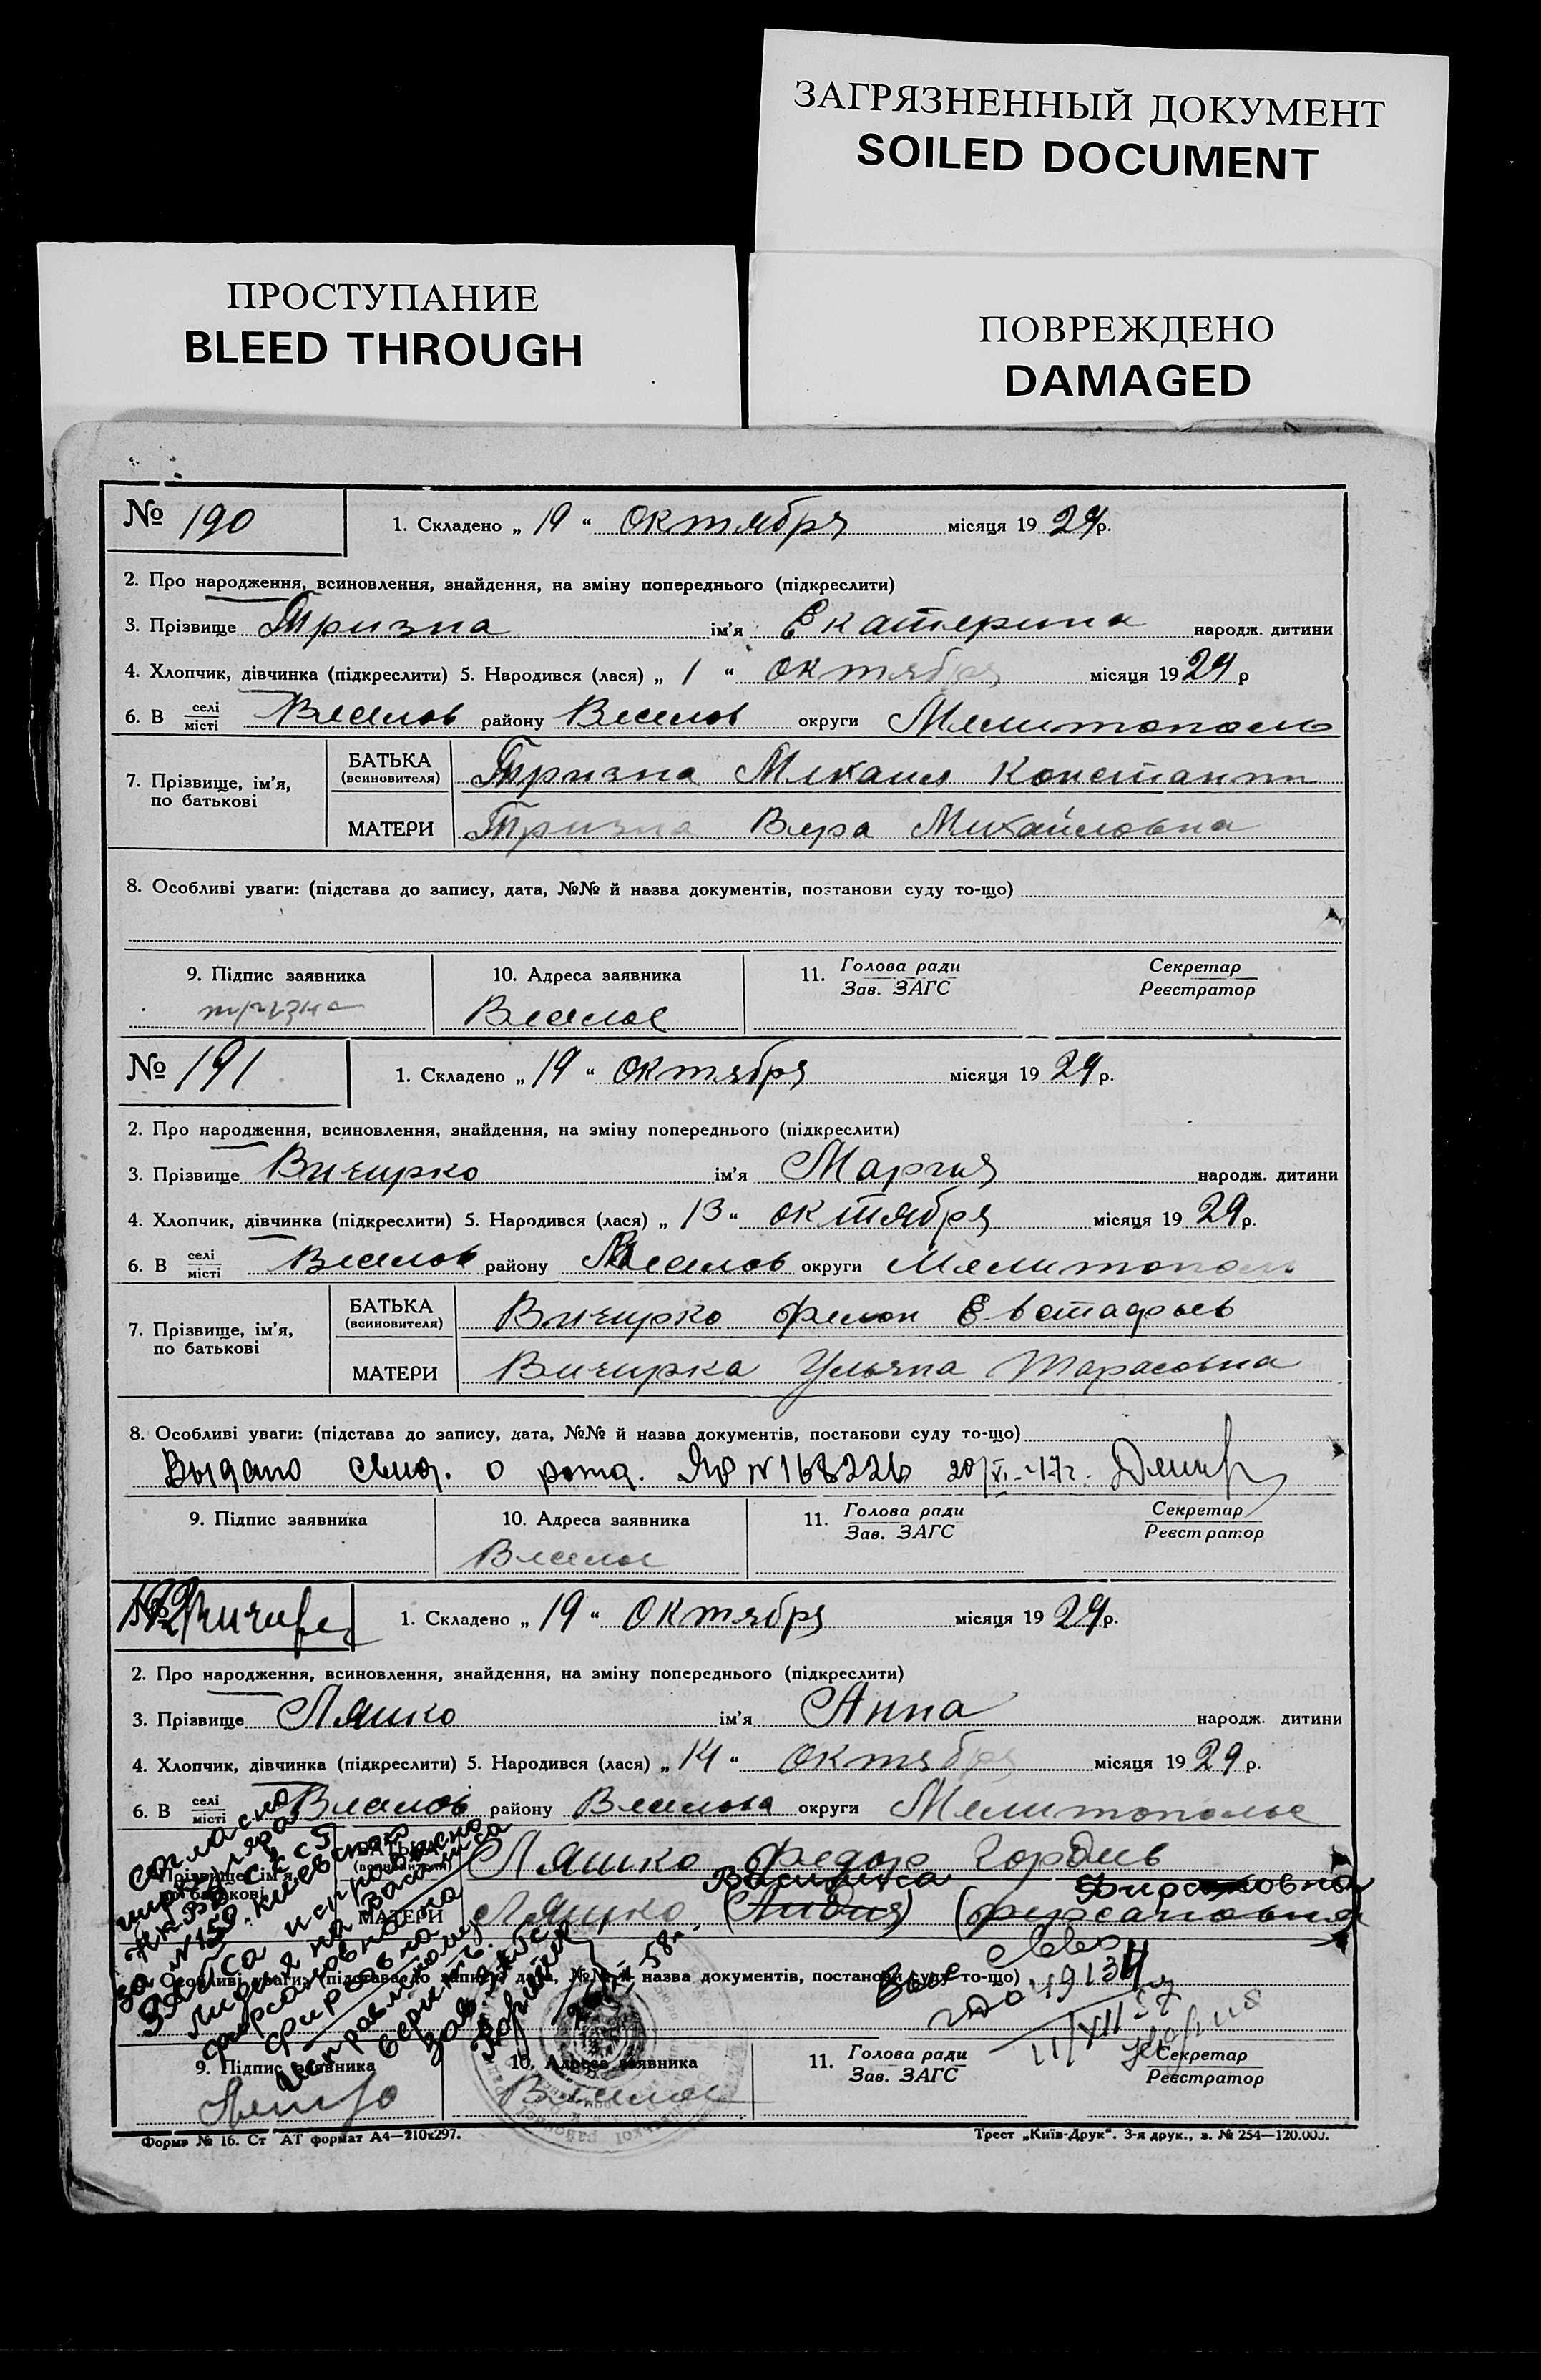 ЗАГРЯЗНЕННЫЙ ДОКУМЕНТ
SOILED DOCUMENT
ПРОСТУПАНИЕ
BLEED THROUGH
ПОВРЕЖДЕНО
DAMAGED
№ 190 1. Складено „ 19 “ октября місяця 19 29 р.
2. Про народження, всиновлення, знайдення, на зміну попереднього (підкреслити)
3. Прізвище Тризна ім'я Екатерина народж. дитини
4. Хлопчик, дівчинка (підкреслити) 5. Народився (лася) „ 1 “ октября місяця 19 29 р
6. В селі місті Веселов району Веселов округи Мелитополь
7. Прізвище, ім'я, по батькові БАТЬКА (всиновителя) Тризна Михаил Константин
МАТЕРИ Тризна Вера Михайловна
8. Особливі уваги: (підстава до запису, дата, №№ й назва документів, постанови суду то-що)
9. Підпис заявника 10. Адреса заявника 11. Голова ради Зав. ЗАГС Секретар Реєстратор
тризна Веселое
№ 191 1. Складено „ 19 “ октября місяця 19 29 р.
2. Про народження, всиновлення, знайдення, на зміну попереднього (підкреслити)
3. Прізвище Вичирко ім'я Мария народж. дитини
4. Хлопчик, дівчинка (підкреслити) 5. Народився (лася) „ 13 “ октября місяця 19 29 р.
6. В селі місті Веселов району Веселов округи Мелитополь
7. Прізвище, ім'я, по батькові БАТЬКА (всиновителя) Вичирко Филон Евстафьев
МАТЕРИ Вичирка Ульяна Тарасовна
8. Особливі уваги: (підстава до запису, дата, №№ й назва документів, постанови суду то-що)
Выдано свид. о рожд. 20/XI-47г.
9. Підпис заявника 10. Адреса заявника 11. Голова ради Зав. ЗАГС Секретар Реєстратор
Веселое
№ 192 1. Складено „ 19 “ октября місяця 19 29 р.
2. Про народження, всиновлення, знайдення, на зміну попереднього (підкреслити)
3. Прізвище Ляшко ім'я Анна народж. дитини
4. Хлопчик, дівчинка (підкреслити) 5. Народився (лася) „ 14 “ октября місяця 19 29 р.
6. В селі місті Веселов району Веселова округи Мелитополье
7. Прізвище, ім'я, по батькові БАТЬКА (всиновителя) Ляшко Федор Гордиев
Василиса
МАТЕРИ Ляшко (Лидия) (Фирсановна)
8. Особливі уваги: (підстава до запису, дата, №№ й назва документів, постанови суду то-що)
согласно
циркуляра
за №159
исправлено
Лидия на Василиса
Фирсановна на
исправленному
верить.
9. Підпис заявника 10. Адреса заявника 11. Голова ради Зав. ЗАГС Секретар Реєстратор
Ляшко Веселое
Форма № 16. Ст АТ формат А4—210х297. Трест „Київ-Друк“. 3-я друк., з. № 254—120.000.